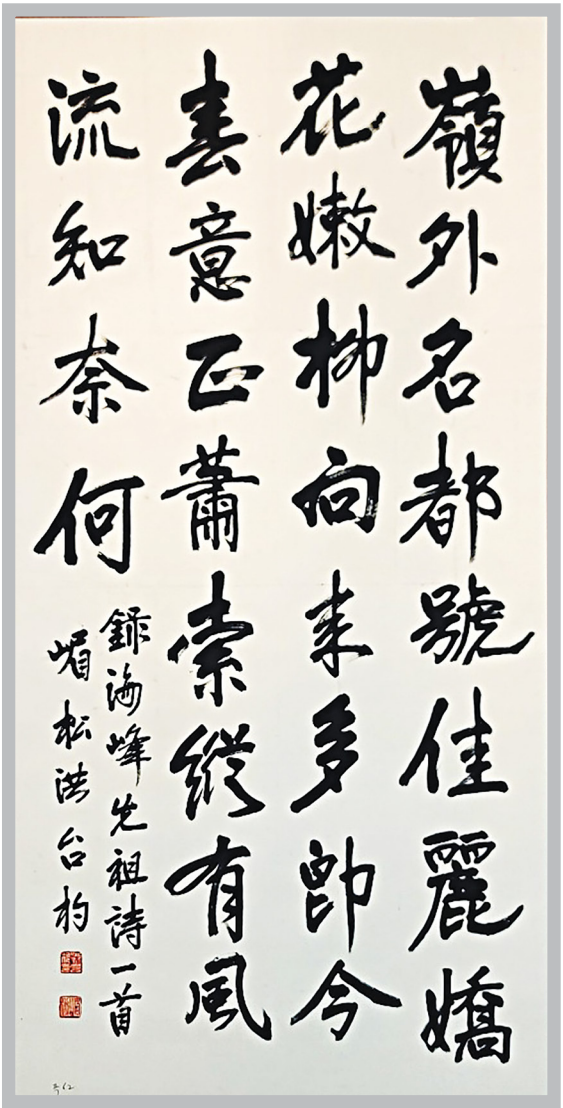 嶺外名都號佳麗嬌
花嫩柳向来多即今
春意正蕭索縱有風
流知奈何
録海峰先祖詩一首
嵋松洪台杓